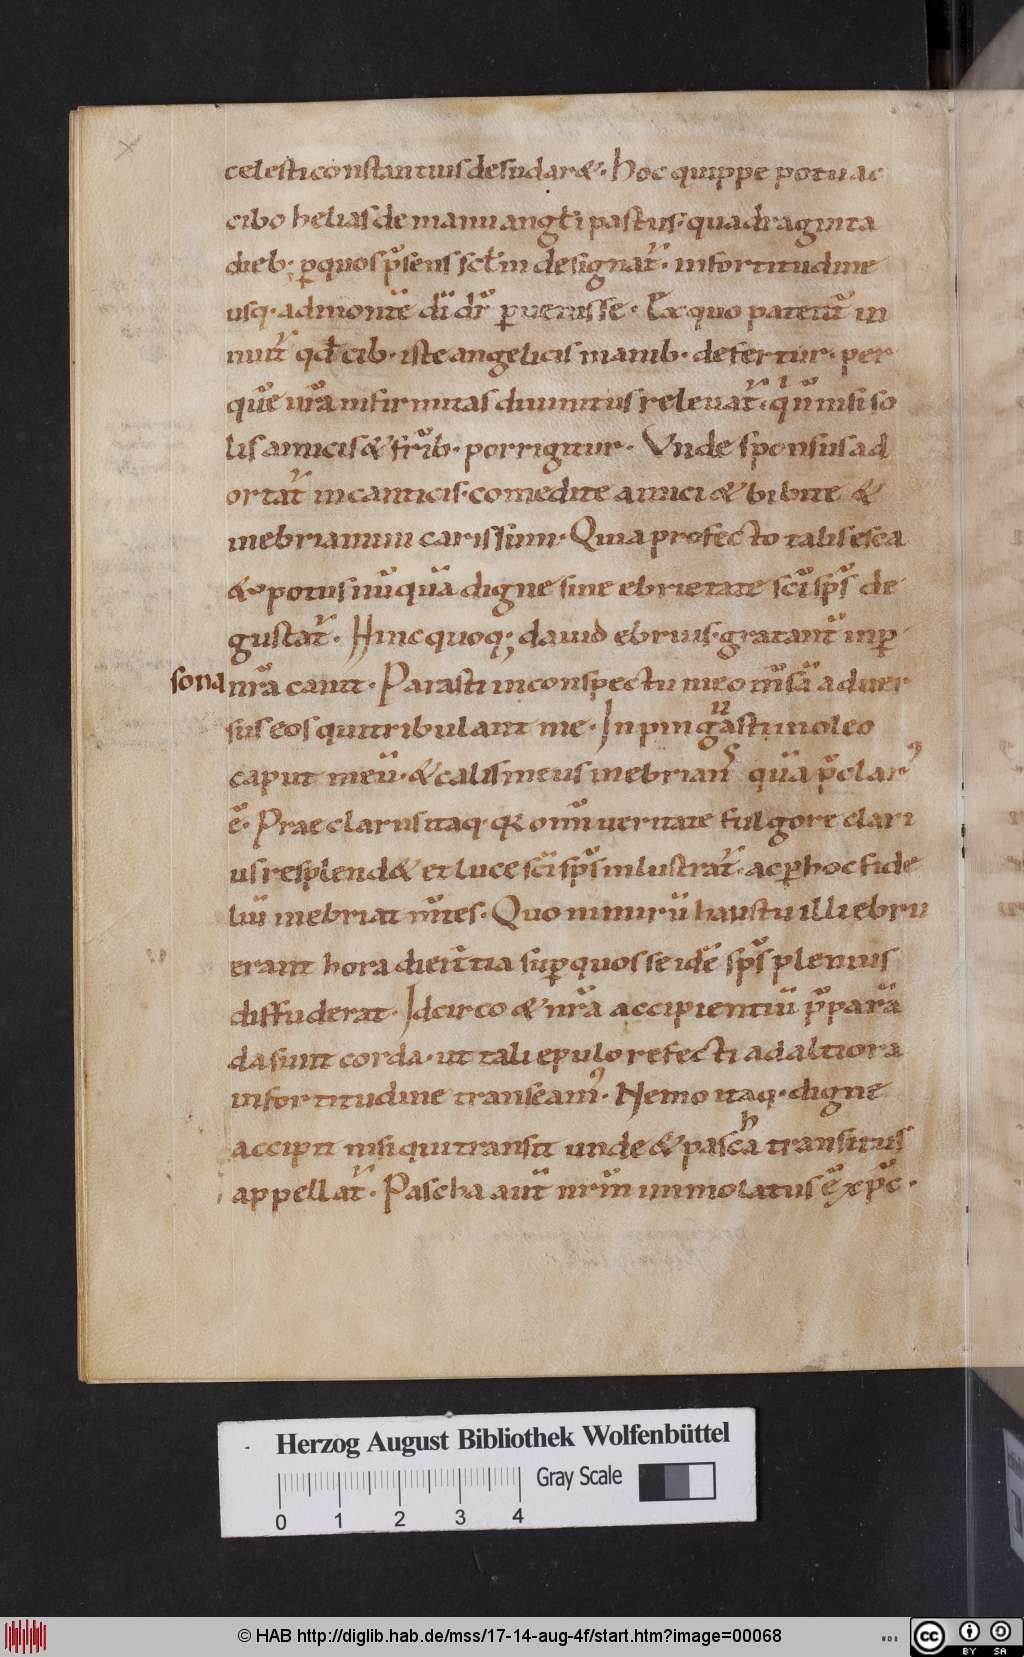 celesti constantius desudar&. Hoc quippe potu ac
cibo helias de manu angłi pastus quadraginta
dieb; p̱quos p̄sens scłm designat̄. in fortitudine
usq· ad monte̅ di̅ dr̄ p̱uenisse. Ex quo patet
qd̄ cib· iste angelicis manib· defertur· per
que̅ nr̅a infirmitas diuinitus releuat̄. nisi so
lis amicis & fr̅ib· porrigitur. Unde sponsus ad
ortat̄ in canticis· comedite amici & bibite &
inebriamini carissimi. Quia profecto talis esca
& potus nu̅qua̅ digne sine ebrietate sc̅i sp̅s de
gustat̄. Hinc quoq; dauid ebrius· gratant̄ in p̱
sona nr̅a canit. Parasti in conspectu meo m̅sa̅ aduer
sus eos qui tribulant me. In pingasti in oleo
n
caput meu̅· & calis meus inebrians qua̅ p̄clar᾽
e̅. Praeclarus itaq· q omni ueritate fulgore clari
us resplend& et luce sc̅i sp̅s inlustrat̄. ac p̱hoc fide
liu̅ inebriat m̅tes. Quo nimiru̅ haustu illi ebrii
erant hora diei t̄tia sup̱quos se ide̅ sp̅s plenius
diffuderat. Idcirco & nr̅a accipientiu̅ p̄para̅
da sunt corda· ut tali epulo refecti ad altiora
in fortitudine transeam᾽. Nemo itaq· digne
accipit nisi qui transit unde & pasca transitus
h
appellat̄. Pascha aut̄ nr̅m immolatus e̅ xp̅c.
Herzog August Bibliothek Wolfenbüttel
Gray Scale
0 1 2 3 4
© HAB http://diglib.hab.de/mss/17-14-aug-4f/start.htm?image=00068
WDB
cc BY SA